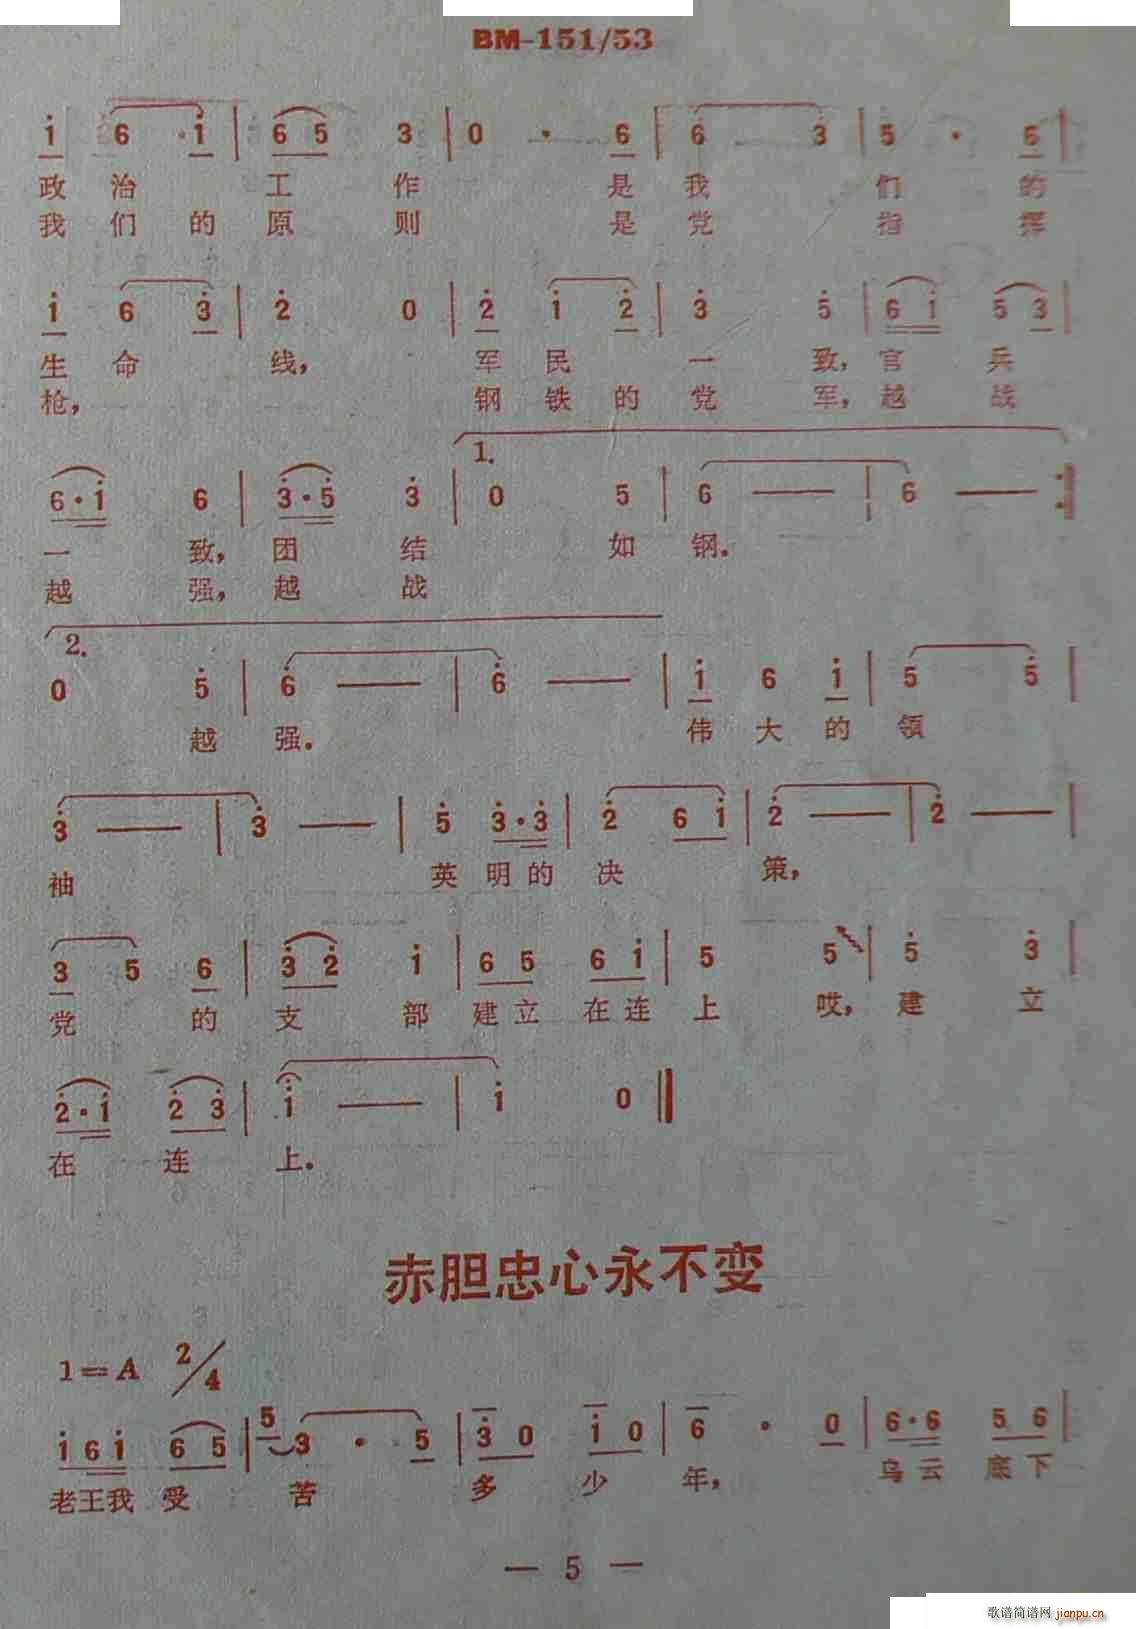 BM-151/53
i 6 · i | 6 5 3 | 0 · 6 | 6 3 | 5 · 6 |
政 治 工 作 是 我 们 的
我 们 的 原 则 是 党 指 挥
i 6 3 | 2 0 | 2 i 2 | 3 5 | 6 i 5 3 |
生 命 线, 军 民 一 致, 官 兵
枪, 钢 铁 的 党 军, 越 战
1.
6·i 6 | 3·5 3 | 0 5 | 6 — | 6 — :|
一 致, 团 结 如 钢.
越 强, 越 战
2.
0 5 | 6 — | 6 — | i 6 i | 5 5 |
越 强. 伟 大 的 领
3 — | 3 — | 5 3·3 | 2 6 i | 2 — | 2 — |
袖 英 明 的 决 策,
3 5 6 | 3 2 i | 6 5 6 i | 5 5 | 5 3 |
党 的 支 部 建 立 在 连 上 哎, 建 立
2·i 2 3 | i — | i 0 ‖
在 连 上.
赤胆忠心永不变
1=A 2/4
i 6 i 6 5 | 5 3 · 5 | 3 0 i 0 | 6 · 0 | 6·6 5 6 |
老 王 我 受 苦 多 少 年, 乌 云 底 下
— 5 —
歌谱简谱网 jianpu.cn